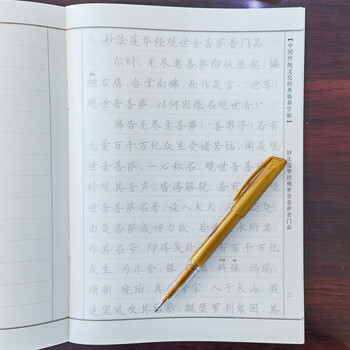 妙法莲华经观世音菩萨普门品
尔时,无尽意菩萨即从座起,偏
袒右肩,合掌向佛,而作是言:“世尊!
观世音菩萨,以何因缘名观世音?”
佛告无尽意菩萨:“善男子!若有
无量百千万亿众生受诸苦恼,闻是观
世音菩萨,一心称名,观世音菩萨
时观其音声,皆得解脱。若有
观世音菩萨名者,设入大火,火
由是菩萨威神力故。若为
称其名号,即得浅处。若有百千万亿
众生,为求金、银、
珊瑚、琥珀、真珠等宝,入于大海,假
使黑风吹其 飘堕罗刹鬼国,其
【中国传统文化经典临摹字帖】
妙法莲华经观世音菩萨普门品